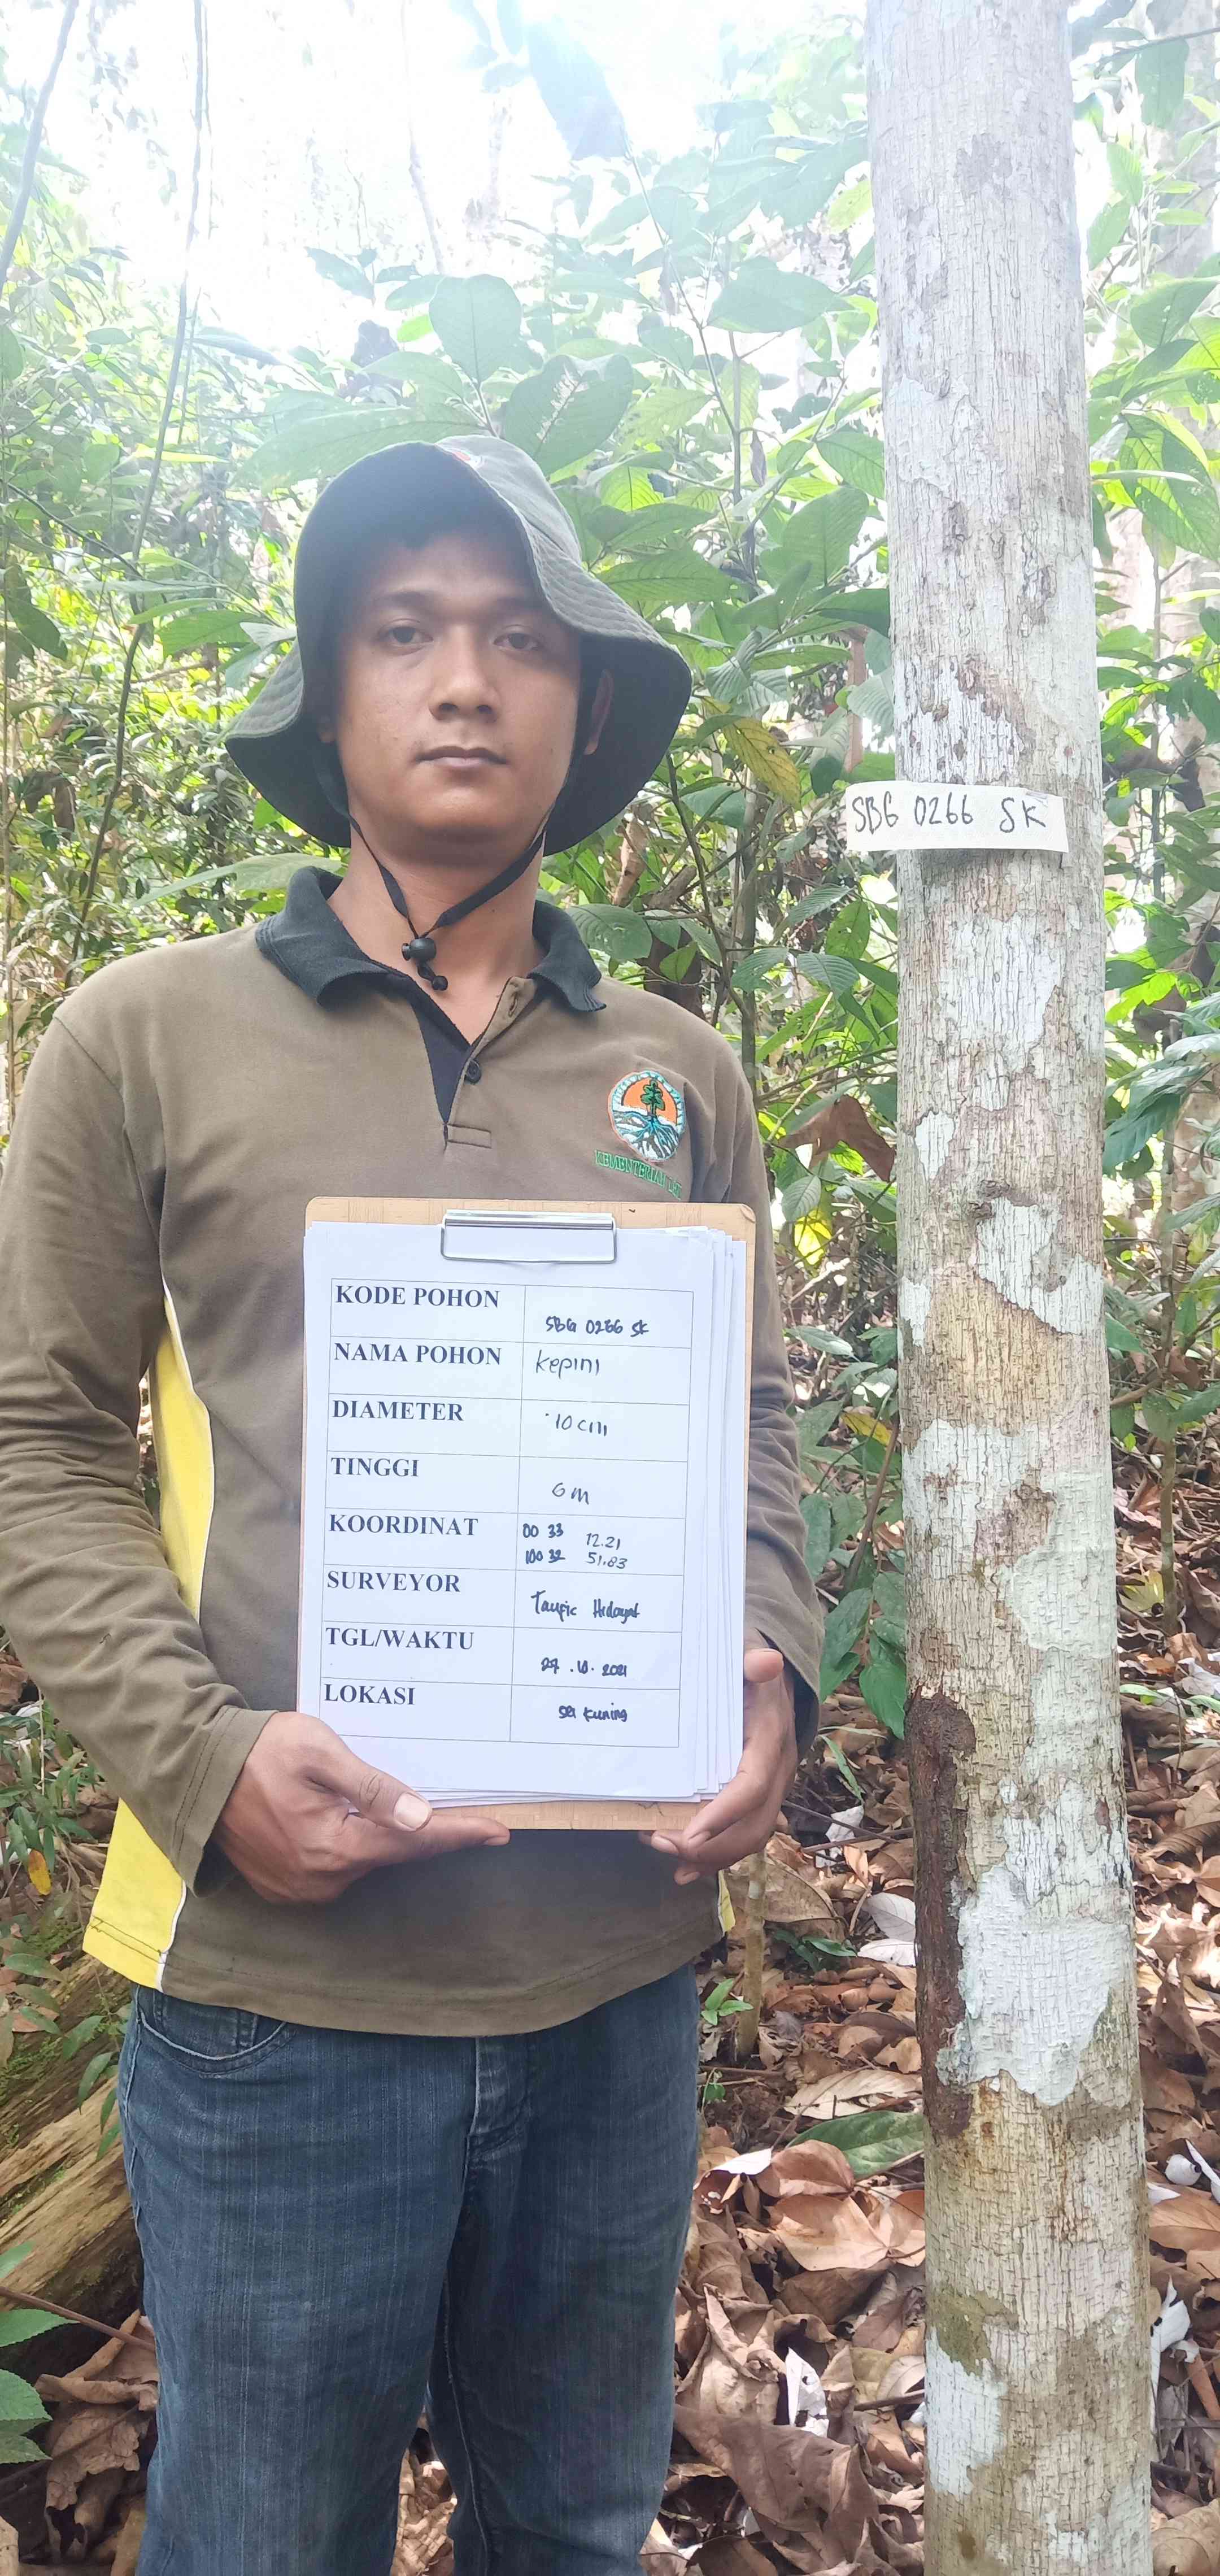 SBG 0266 SK
KEMENTERIAN
KODE POHON SBG 0266 SK
NAMA POHON Kepini
DIAMETER 10 cm
TINGGI 6 m
KOORDINAT 00 33 12.21
100 32 51.83
SURVEYOR Taufic Hidayat
TGL/WAKTU 27.10.2021
LOKASI Sei Kuning